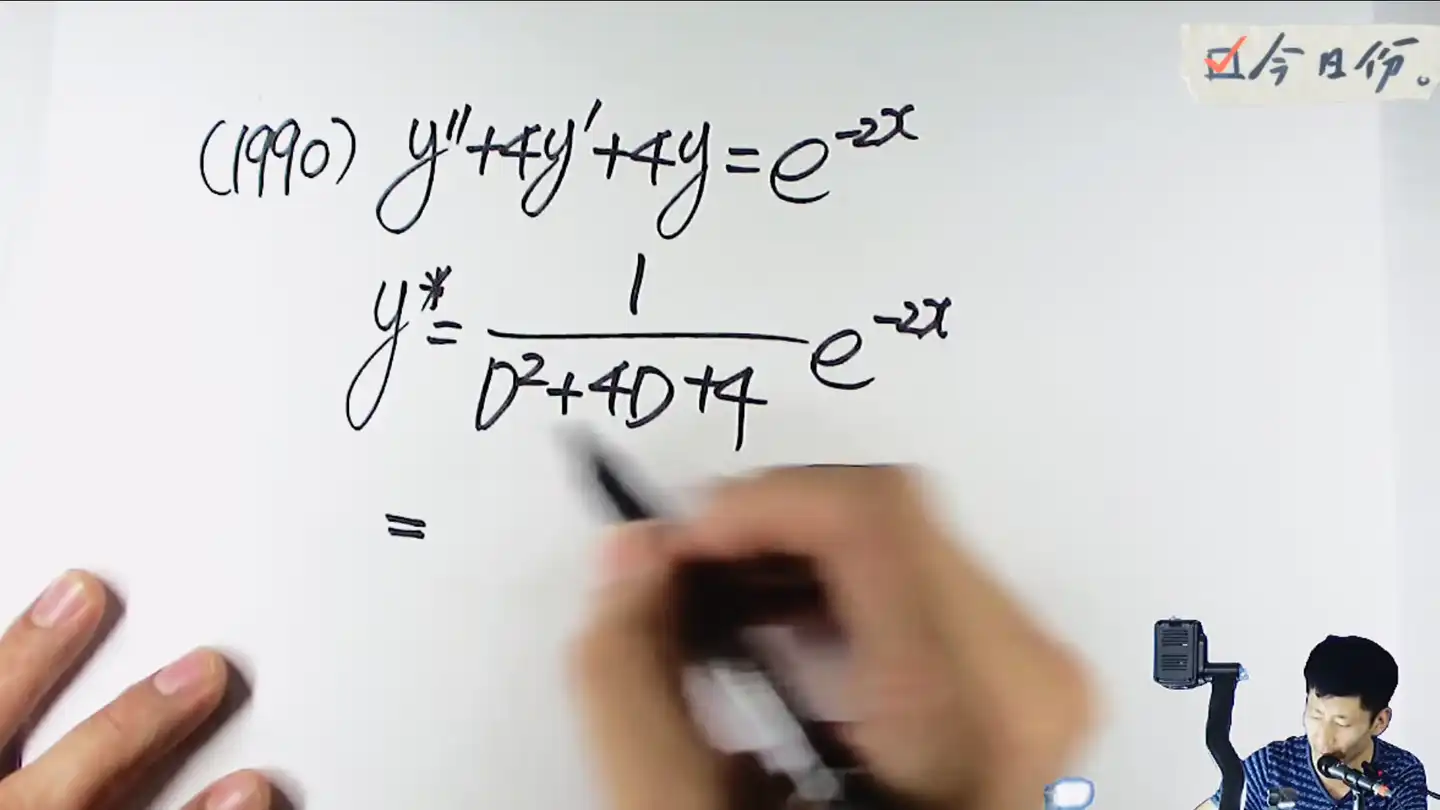 今日份。
(1990) y''+4y'+4y=e^{-2x}
y*= \frac{1}{D^2+4D+4} e^{-2x}
=